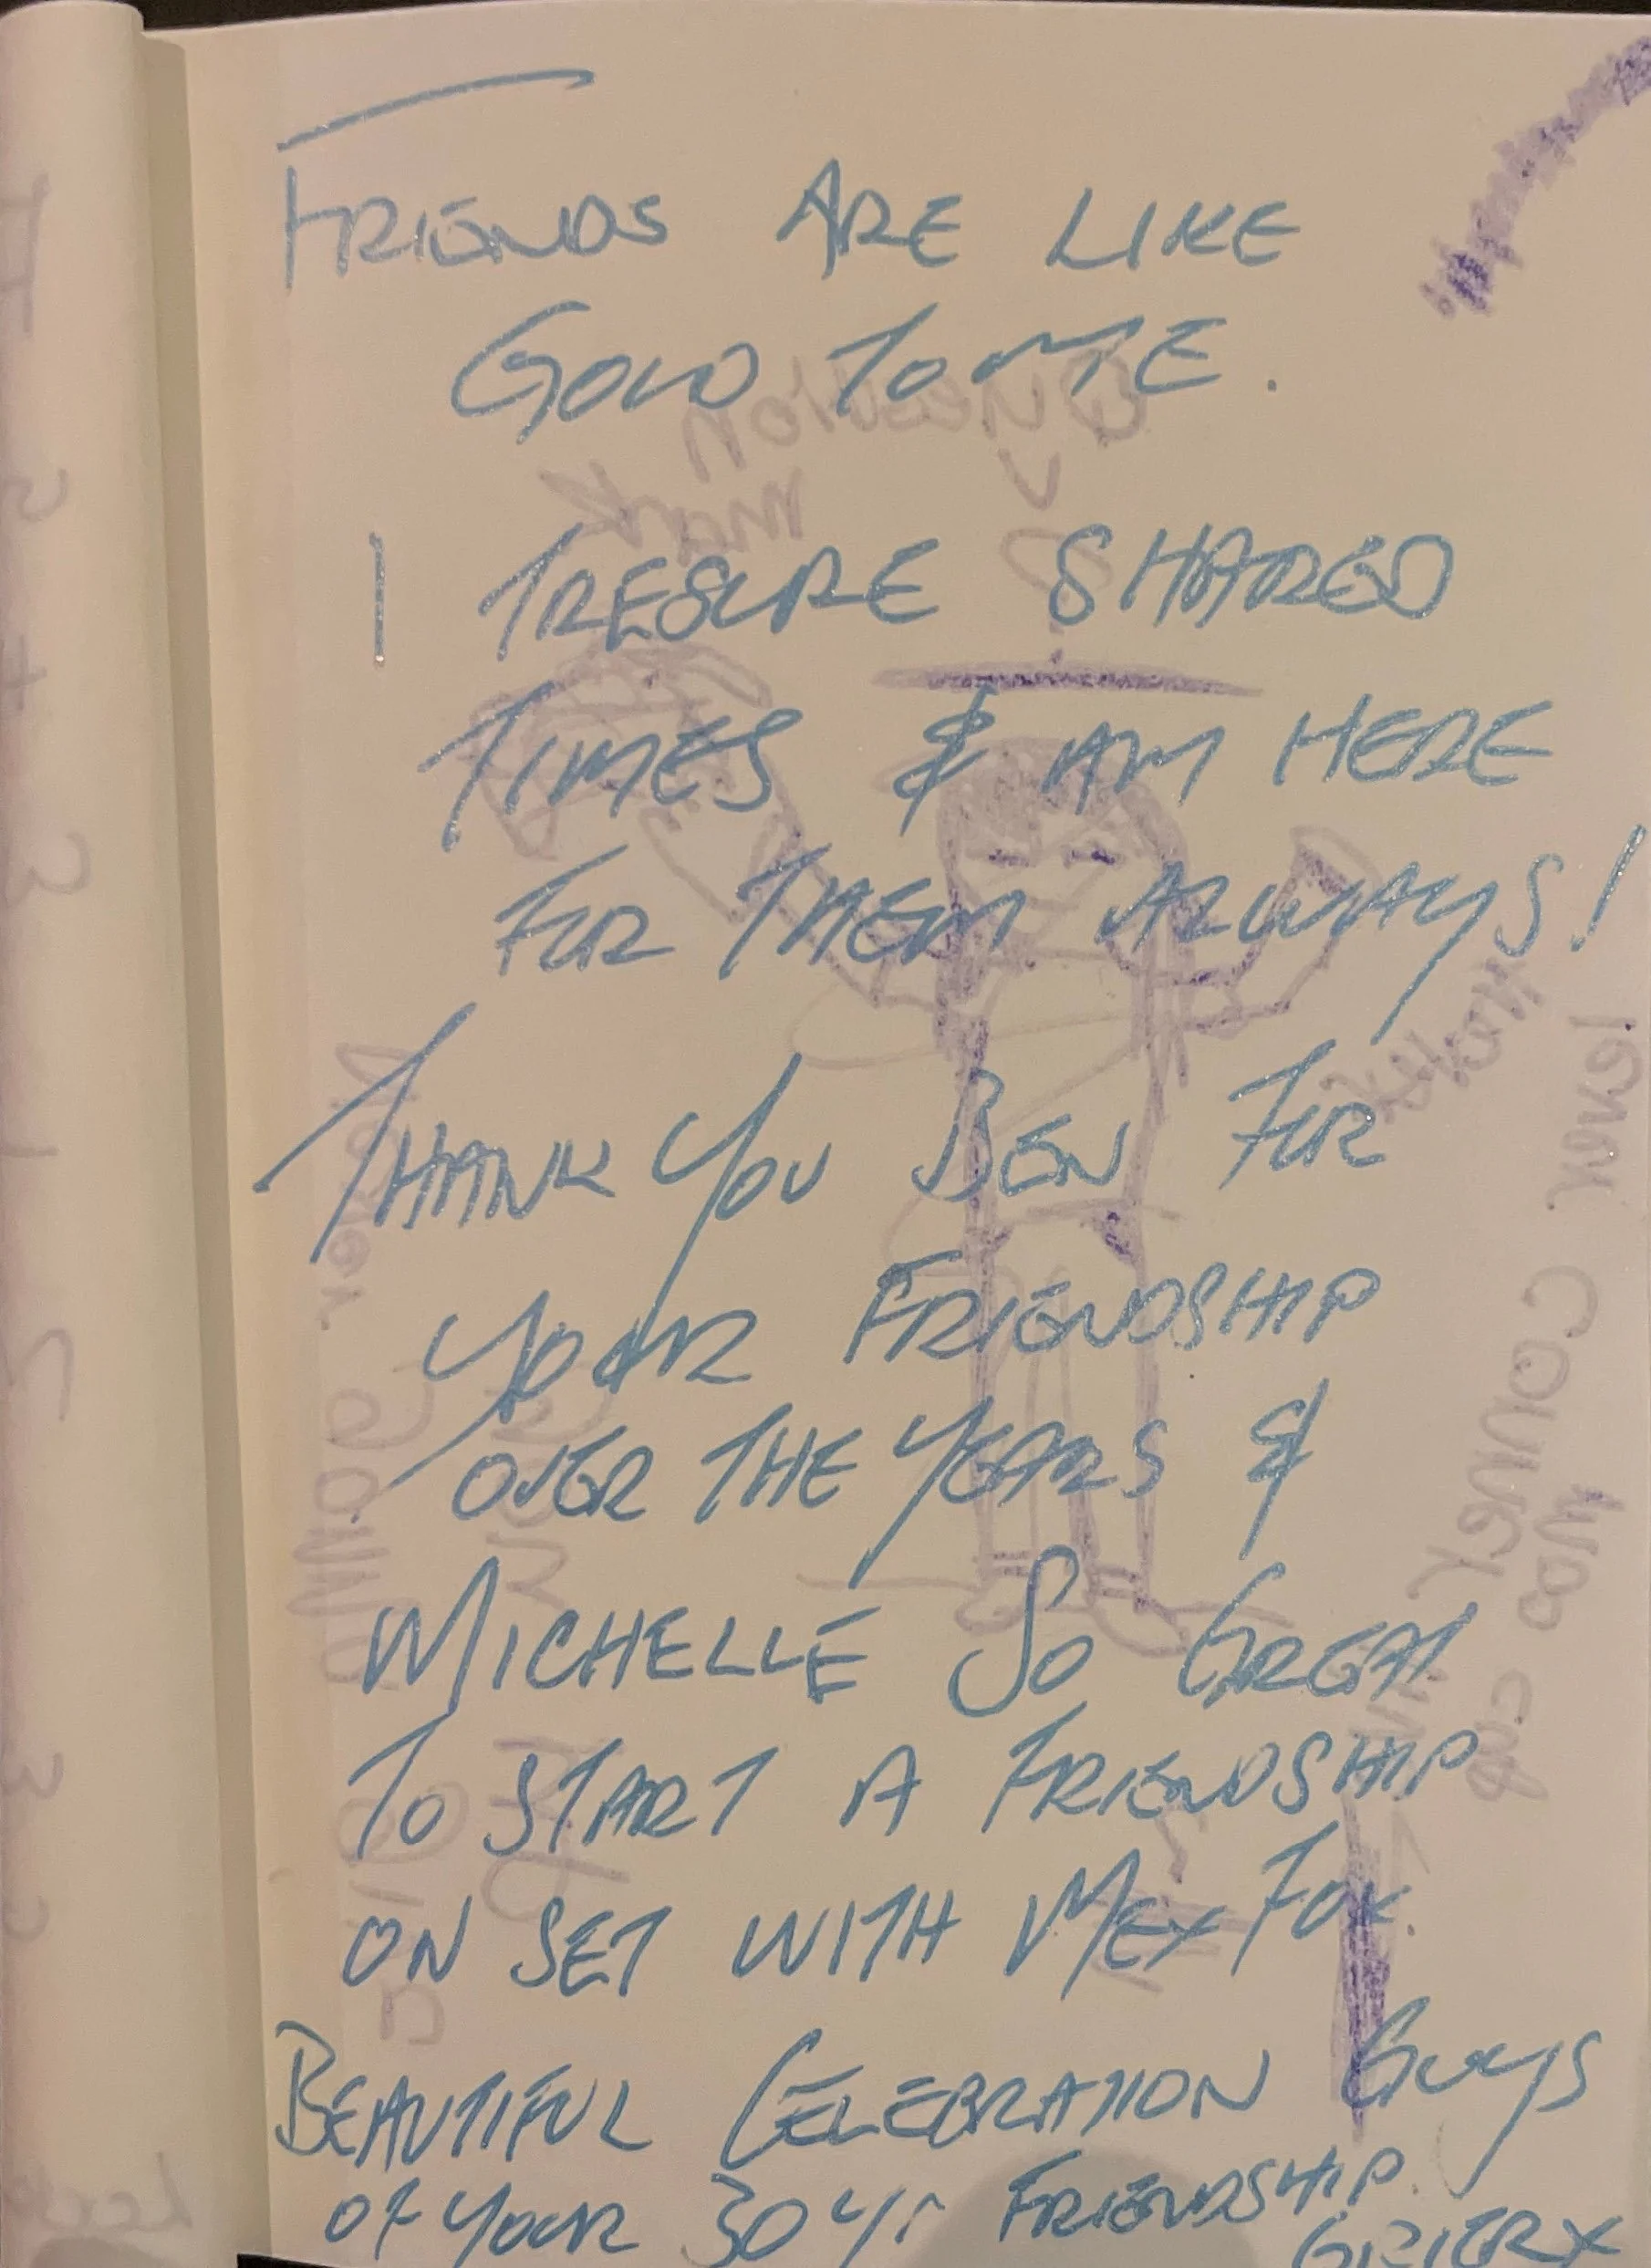 FRIENDS ARE LIKE
GOLD TO ME.
I TRESURE SHARED
TIMES & AM HERE
FOR THEM ALWAYS!
THANK YOU BEN FOR
YOUR FRIENDSHIP
OVER THE YEARS &
MICHELLE SO GREAT
TO START A FRIENDSHIP
ON SET WITH MEX FOX.
BEAUTIFUL CELEBRATION GUYS
OF YOUR 30 Yr FRIENDSHIP.
Question
mark